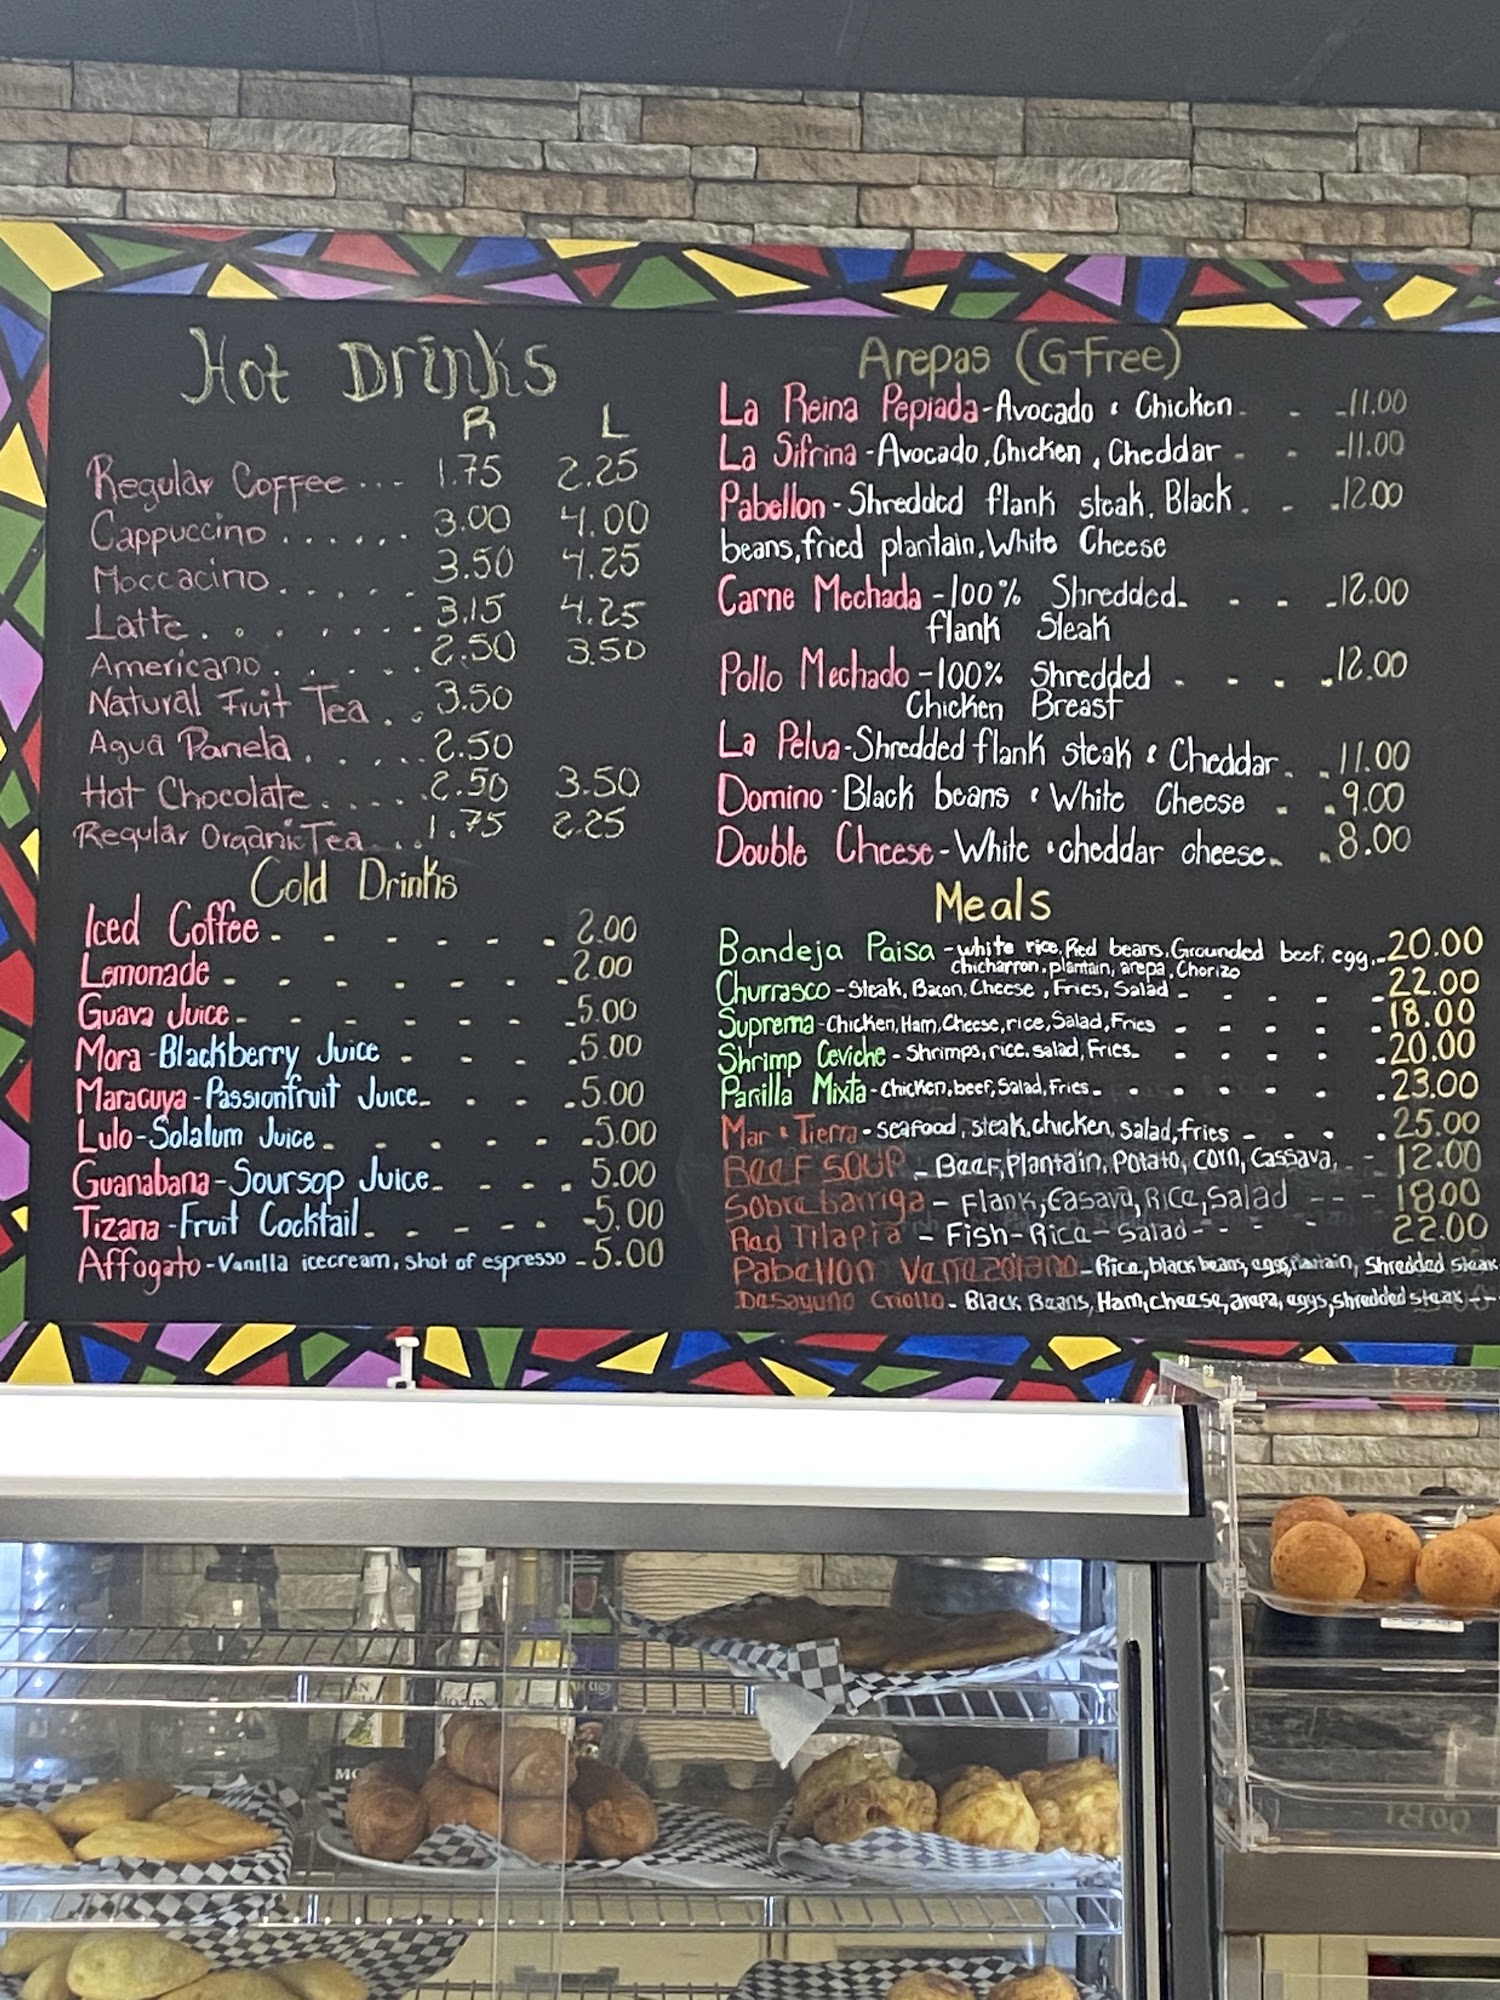 Hot Drinks
R L
Regular Coffee ... 1.75 2.25
Cappuccino ...... 3.00 4.00
Moccacino ..... 3.50 4.25
Latte ....... 3.15 4.25
Americano ..... 2.50 3.50
Natural Fruit Tea .. 3.50
Agua Panela ..... 2.50
Hot Chocolate ..... 2.50 3.50
Regular Organic Tea ... 1.75 2.25
Cold Drinks
Iced Coffee - - - - - - 2.00
Lemonade - - - - - - - 2.00
Guava Juice - - - - - - - 5.00
Mora - Blackberry Juice - - - - 5.00
Maracuya - Passionfruit Juice - - - - 5.00
Lulo - Solalum Juice - - - - - - 5.00
Guanabana - Soursop Juice - - - - 5.00
Tizana - Fruit Cocktail - - - - - 5.00
Affogato - Vanilla icecream, shot of espresso - 5.00
Arepas (G-Free)
La Reina Pepiada - Avocado & Chicken - - - 11.00
La Sifrina - Avocado, Chicken, Cheddar - - - 11.00
Pabellon - Shredded flank steak, Black - - - 12.00
beans, fried plantain, White Cheese
Carne Mechada - 100% Shredded - - - - 12.00
flank Steak
Pollo Mechado - 100% Shredded - - - - - 12.00
Chicken Breast
La Pelua - Shredded flank steak & Cheddar - - 11.00
Domino - Black beans & White Cheese - - 9.00
Double Cheese - White & cheddar cheese - - 8.00
Meals
Bandeja Paisa - white rice, Red beans, Grounded beef, egg, - 20.00
chicharron, plantain, arepa, Chorizo
Churrasco - Steak, Bacon, Cheese, Fries, Salad - - - - - 22.00
Suprema - Chicken, Ham, Cheese, rice, Salad, Fries - - - - - 18.00
Shrimp Ceviche - Shrimps, rice, salad, Fries - - - - - - 20.00
Parilla Mixta - Chicken, beef, Salad, Fries - - - - - - - 23.00
Mar & Tierra - seafood, steak, chicken, salad, fries - - - - 25.00
Beef Soup - Beef, Plantain, Potato, corn, Cassava, - - 12.00
Sobre barriga - Flank, Casava, Rice, Salad - - - 18.00
Red Tilapia - Fish - Rice - Salad - - - - 22.00
Pabellon Venezolano - Rice, black beans, eggs, Plantain, Shredded steak
Desayuno Criollo - Black Beans, Ham, cheese, arepa, eggs, shredded steak - -
18.00